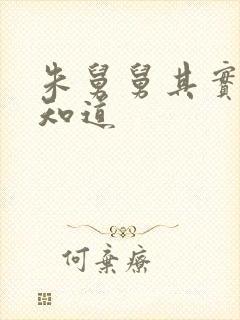 朱舅舅其實
知道
何棄療